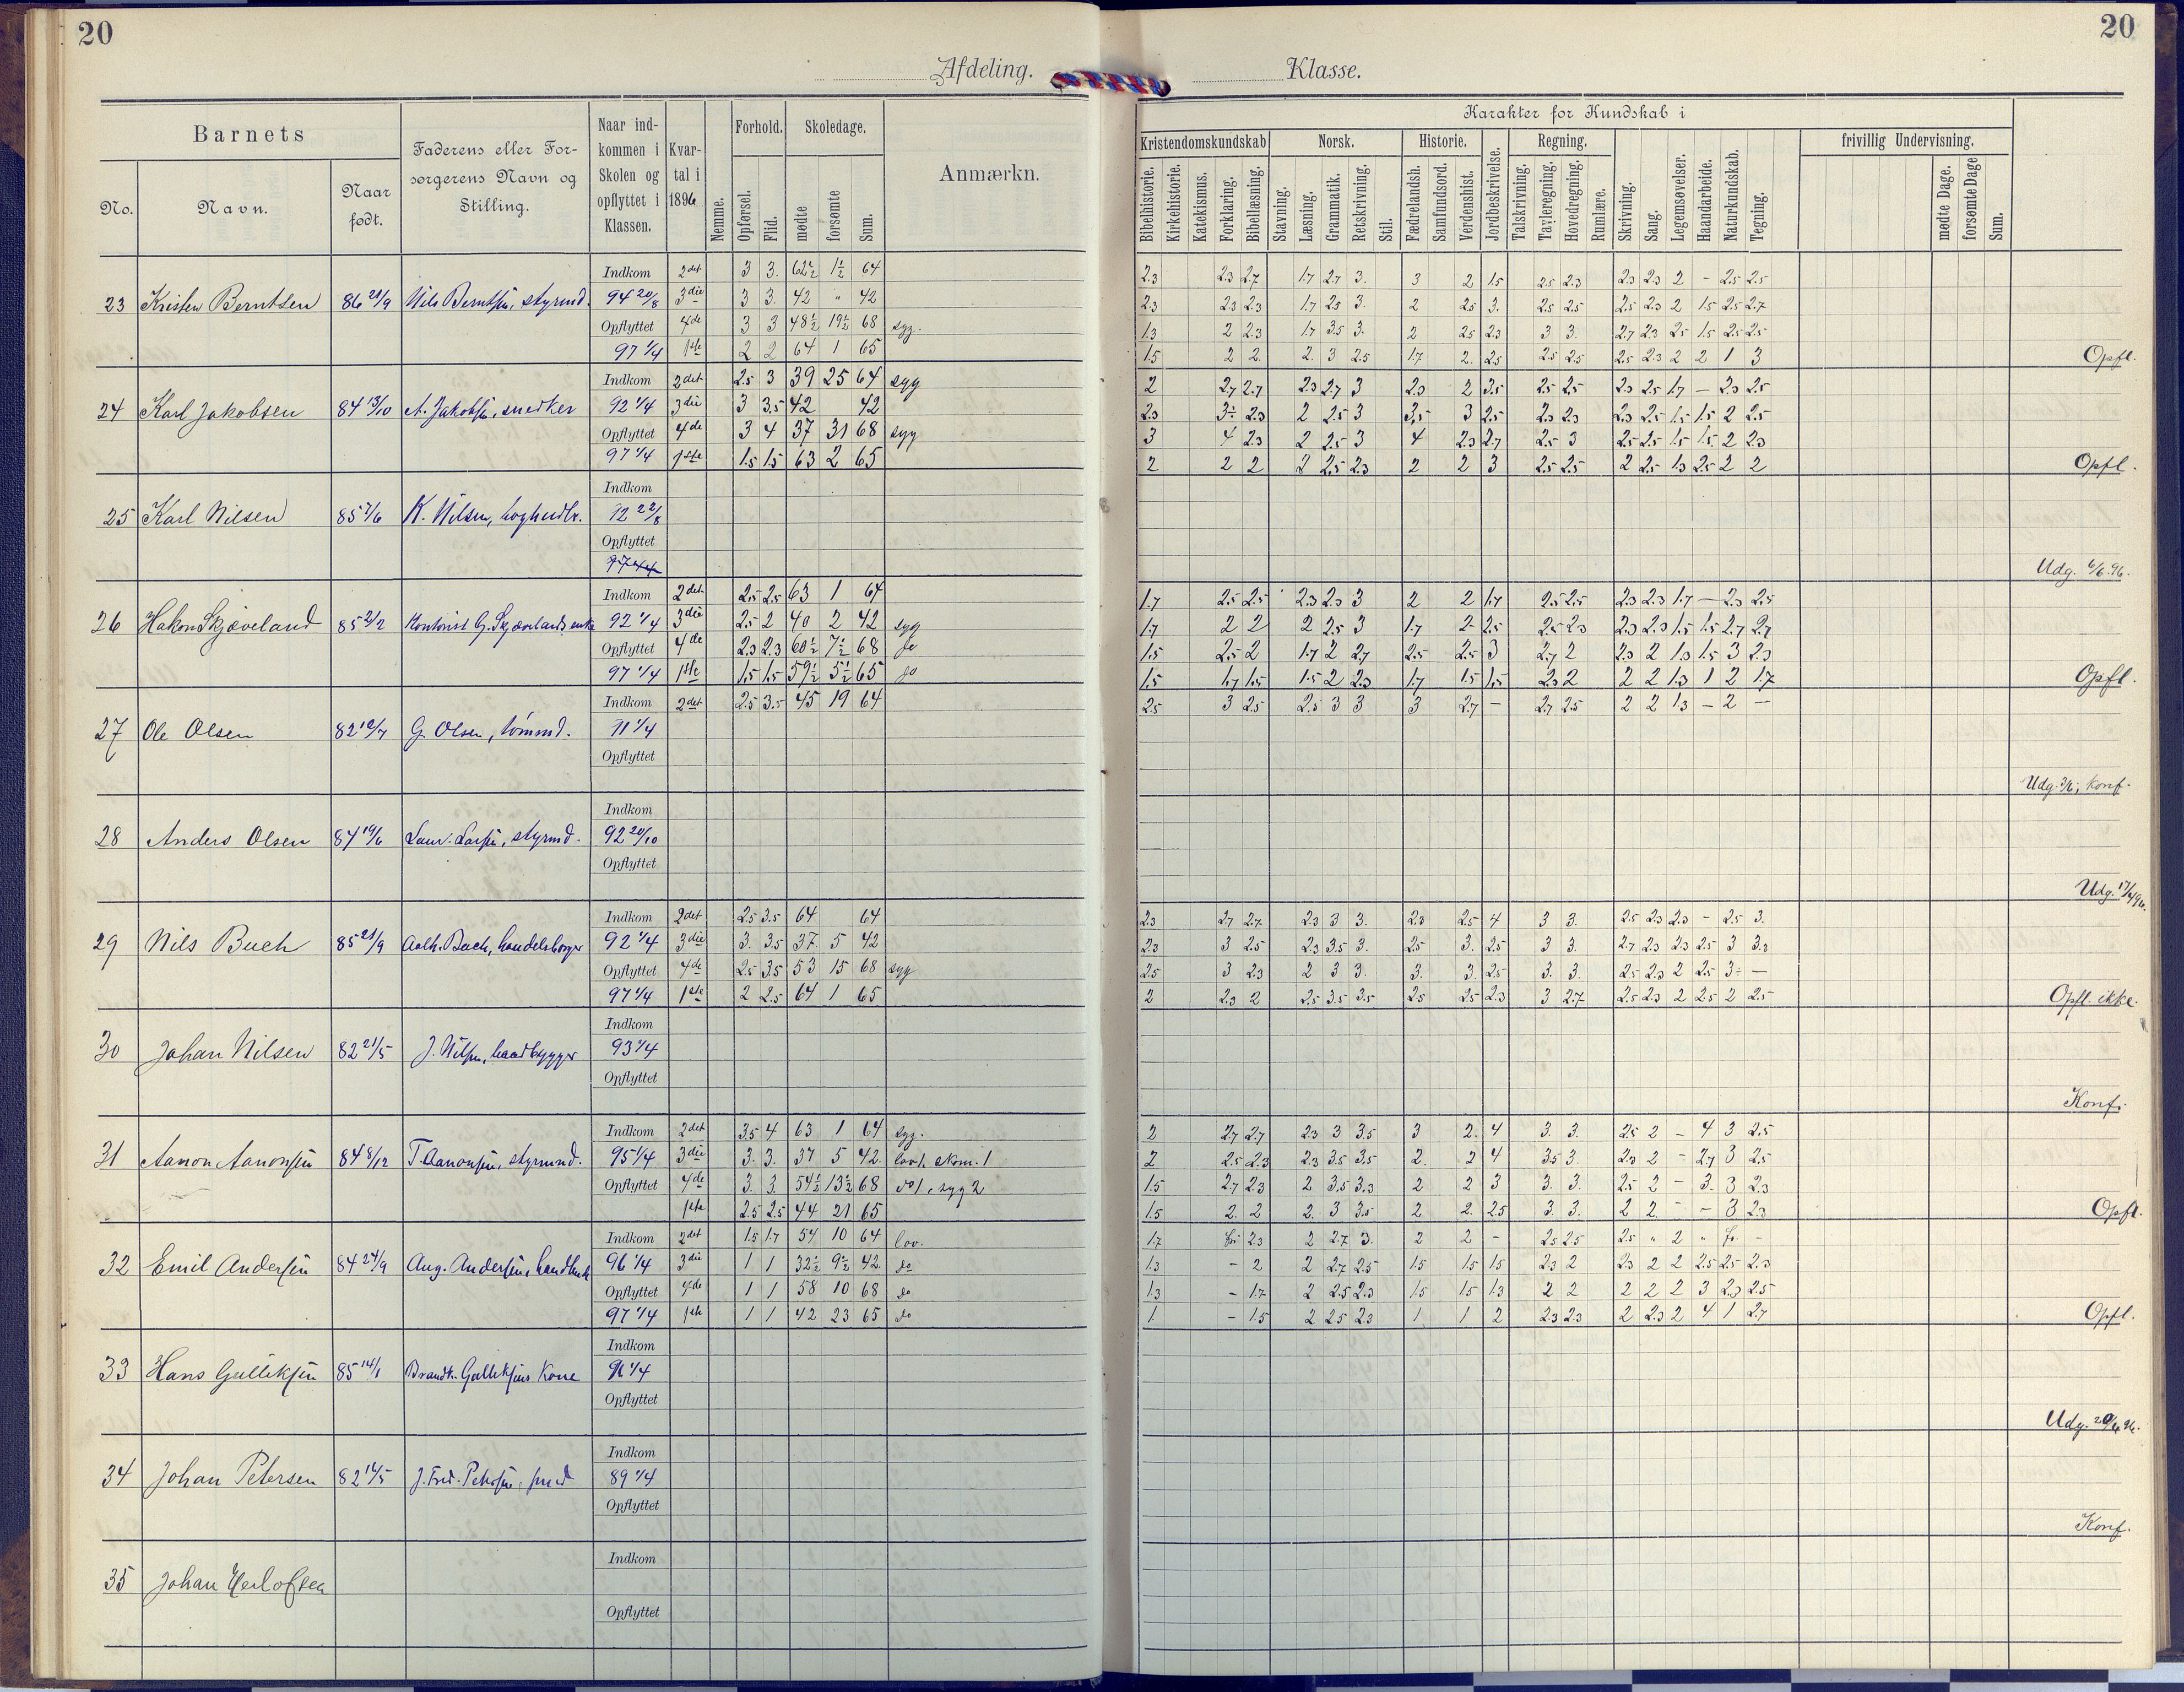 20
20
Afdeling.
Klasse.
Barnets
No.
Navn.
Naar født.
Faderens eller Forsørgerens Navn og Stilling.
Naar indkommen i Skolen og opflyttet i Klassen.
Kvartal i 1896
Nemme.
Forhold.
Opførsel.
Flid.
Skoledage.
mødte
forsømte
Sum.
Anmærkn.
Karakter for Kundskab i
Kristendomskundskab
Bibelhistorie.
Kirkehistorie.
Katekismus.
Forklaring.
Bibellæsning.
Norsk.
Stavning.
Læsning.
Grammatik.
Retskrivning.
Stil.
Historie.
Fædrelandsh.
Samfundsord.
Verdenshist.
Jordbeskrivelse.
Regning.
Talskrivning.
Tavleregning.
Hovedregning.
Rumlære.
Skrivning.
Sang.
Legemsøvelser.
Haandarbeide.
Naturkundskab.
Tegning.
frivillig Undervisning.
mødte Dage.
forsømte Dage
Sum.
Indkom 2det 3 3. 62½ 1½ 64 2.3 2.3 2.7 1.7 2.7 3. 3 2 1.5 2.5 2.3 2.3 2.3 2 - 2.5 2.5
23 Kristen Berntsen 86 21/9 Nils Berntsen, styrmd. 94 20/8 3die 3 3. 42 " 42 2.3 2.3 2.3 1.7 2.5 3. 2 2.5 3. 2.5 2.5 2.5 2.3 2 1.5 2.5 2.7
Opflyttet 4de 3 3 48½ 19½ 68 syg. 1.3 2 2.3 1.7 3.5 3. 2 2.5 2.3 3 3. 2.7 2.3 2.5 1.5 2.5 2.5
97 1/4 1ste 2 2 64 1 65 1.5 2 2. 2. 3 2.5 1.7 2. 2.5 2.5 2.5 2.5 2.3 2 2 1 3 Opfl.
Indkom 2det 2.5 3 39 25 64 syg 2 2.7 2.7 2.3 2.7 3 2.3 2 3.5 2.5 2.5 2.3 2.5 1.7 - 2.3 2.5
24 Karl Jakobsen 84 13/10 A. Jakobsen, snedker 92 1/4 3die 3 3.5 42 42 2.3 3÷ 2.3 2 2.5 3 3,5 3 2.5 2.3 2.3 2.3 2.5 1.5 1.5 2 2.5
Opflyttet 4de 3 4 37 31 68 syg 3 4 2.3 2 2.5 3 4 2.3 2.7 2.5 3 2.5 2.5 1.5 1.5 2 2.3
97 1/4 1ste 1.5 1.5 63 2 65 2 2 2 2 2.5 2.3 2 2 3 2.5 2.5 2 2.5 1.3 2.5 2 2 Opfl.
Indkom
25 Karl Nilsen 85 7/6 K. Nilsen, 22/8
Opflyttet
Udg. 6/6.96.
Indkom 2det 2.5 2.5 63 1 64 1.7 2.5 2.5 2.3 2.3 3 2 2 1.7 2.5 2.5 2.3 2.3 1.7 - 2.3 2.5
26 Hakon Skjæveland 85 21/2 Kontorist G. Skjævelands enke 92 1/4 3die 2.5 2 40 2 42 syg 1.7 2 2 2 2.5 3 1.7 2 2.5 2.5 2.3 2.3 2.3 1.5 1.5 2.7 2.7
Opflyttet 4de 2.3 2.3 60½ 7½ 68 do 1.5 2.5 2 1.7 2 2.7 2.5 2.5 3 2.7 2 2.3 2 1.3 1.5 3 2.3
97 1/4 1ste 1.5 1.5 59½ 5½ 65 do 1.5 1.7 1.5 1.5 2 2.3 1.7 1.5 1.5 2.3 2 2 2 1.3 1 2 1.7 Opfl.
Indkom 2det 2.5 3.5 45 19 64 2.5 3 2.5 2.5 3 3 3 2.7 - 2.7 2.5 2 2 1.3 - 2 -
27 Ole Olsen 82 12/7 G. Olsen, tømmd. 91 1/4
Opflyttet
Konf.
Indkom
28 Anders Olsen 84 19/6 Laur. Larsen, styrmd. 92 20/10
Opflyttet
Udg. 17/4 96.
Indkom 2det 2.5 3.5 64 64 2.3 2.7 2.7 2.3 3 3. 2.3 2.5 4 3 3. 2.5 2.3 2.3 - 2.5 3.
29 Nils Buch 85 21/9 Buch, handelsborger 92 1/4 3die 3. 3.5 37. 5 42 2.3 3 2.5 2.3 3.5 3. 2.5 3. 2.5 3 3. 2.7 2.3 2.3 2.5 3 3.3
Opflyttet 4de 2.5 3.5 53 15 68 syg 2.5 3 2.3 2 3 3. 3. 3. 2.5 3. 3. 2.5 2.3 2 2.5 3÷ -
97 1/4 1ste 2 2.5 64 1 65 2 2.3 2 2.5 3.5 3.5 2.5 2.5 2.3 3 2.7 2.5 2.3 2 2.5 2 2.5 Opfl. ikke.
Indkom
30 Johan Nilsen 82 21/5 J. Nilsen, baadbygger 93 1/4
Opflyttet
Konf.
Indkom 2det 3.5 4 63 1 64 syg. 2 2.7 2.7 2.3 3 3.5 3 2. 4 3. 3. 2.5 2 - 4 3 2.5
31 Aanon Aanonsen 84 8/12 T. Aanonsen, styrmand. 95 1/4 3die 3. 3. 37 5 42 2 2.5 2.3 2.3 3.5 3.5 2. 2 4 3.5 3. 2.3 2 - 2.7 3 2.5
Opflyttet 4de 3. 3. 54½ 13½ 68 do 1, syg 2 1.5 2.7 2.3 2 3.5 3.3 2 2 3 3. 3. 2.5 2 - 3. 3 2.3
1ste 2.5 2.5 44 21 65 1.5 2. 2 2. 3 3.5 2 2. 2.5 3. 3. 2 2. - - 3 2.3 Opfl.
Indkom 2det 1.5 1.7 54 10 64 lov. 1.7 fri 2.3 2 2.7 3. 2 2 - 2.5 2.5 2.5 " 2 " fr. -
32 Emil Andersen 84 24/9 Aug. Andersen, 96 1/4 3die 1 1 32½ 9½ 42 do 1.3 - 2 2 2.7 2.5 1.5 1.5 1.5 2.3 2 2.3 2 2 2.5 2.5 2.3
Opflyttet 4de 1 1 58 10 68 do 1.3 - 1.7 2 2.5 2.3 1.5 1.5 1.3 2 2 2 2 2 3 2.3 2.5
97 1/4 1ste 1 1 42 23 65 do 1 - 1.5 2 2.5 2.3 1 1 2 2.3 2.3 2 2.3 2 4 1 2.7 Opfl.
Indkom
33 Hans Gulliksen 85 14/1 Gulliksens Kone 1/4
Opflyttet
Udg. 20/6 96.
Indkom
34 Johan Petersen 82 J. Fred. Petersen, smed 89 1/4
Opflyttet
Konf.
Indkom
35 Johan Herlofsen
Opflyttet